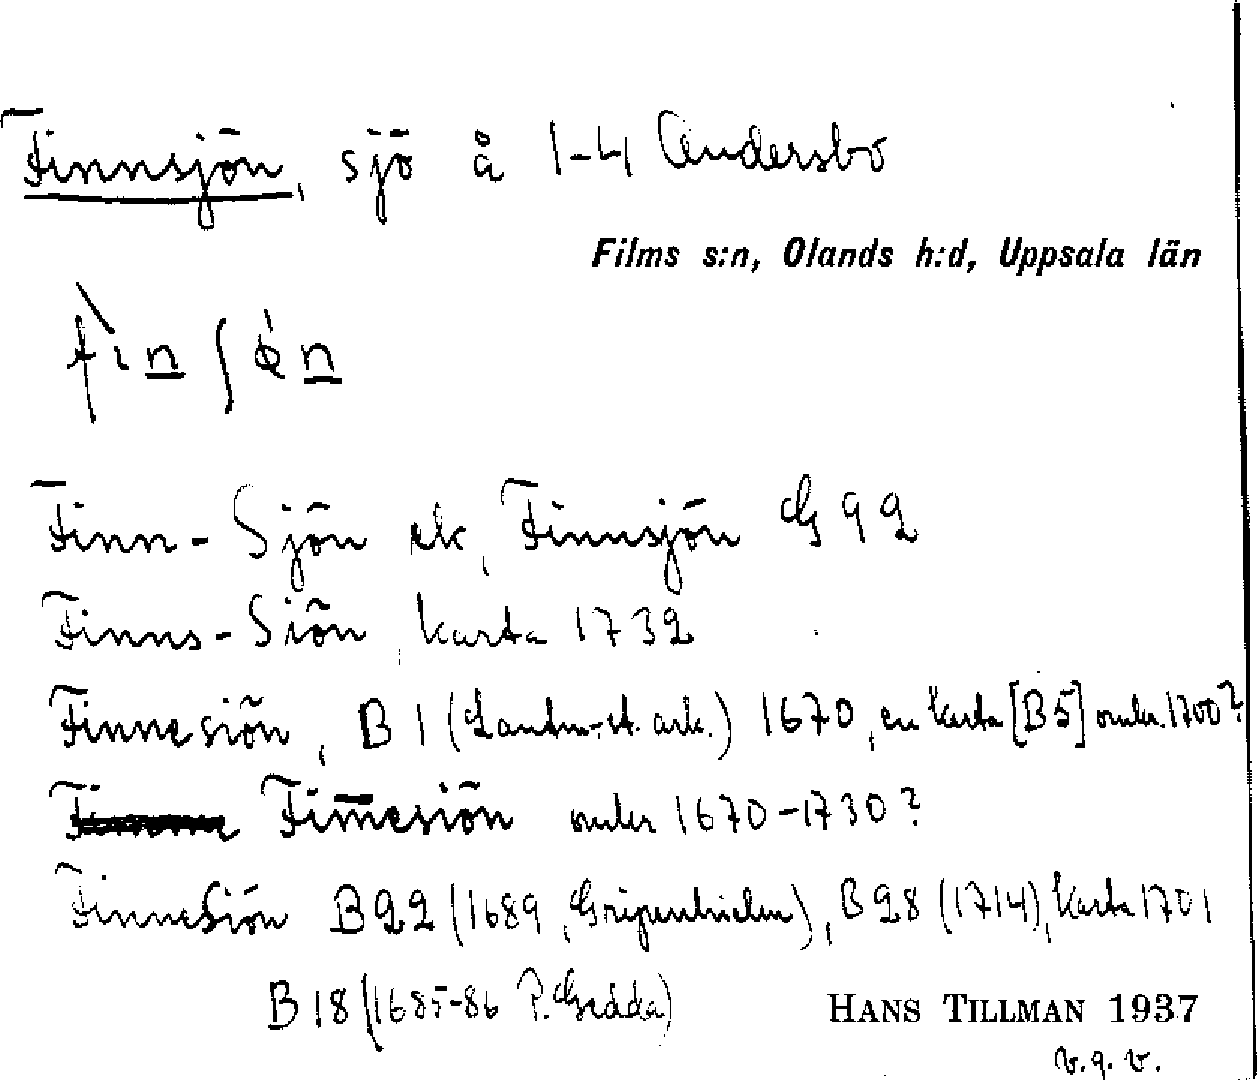 Finnsjön, sjö å 1-4 Andersbo
Films s:n, Olands h:d, Uppsala län
Finn-Sjön ek, Finnsjön G 92
Finns-Siön, karta 1732
Finnesiön, B 1 (Lantm.-st. ark.) 1670, en karta [B5] omkr. 1700?
Fim̅esiön omkr 1670-1730?
FinneSiön B22 (1689, Gripenhielm), B28 (1714), karta 1701
B18 (1685-86 P. Gedda)
HANS TILLMAN 1937
v.g.v.